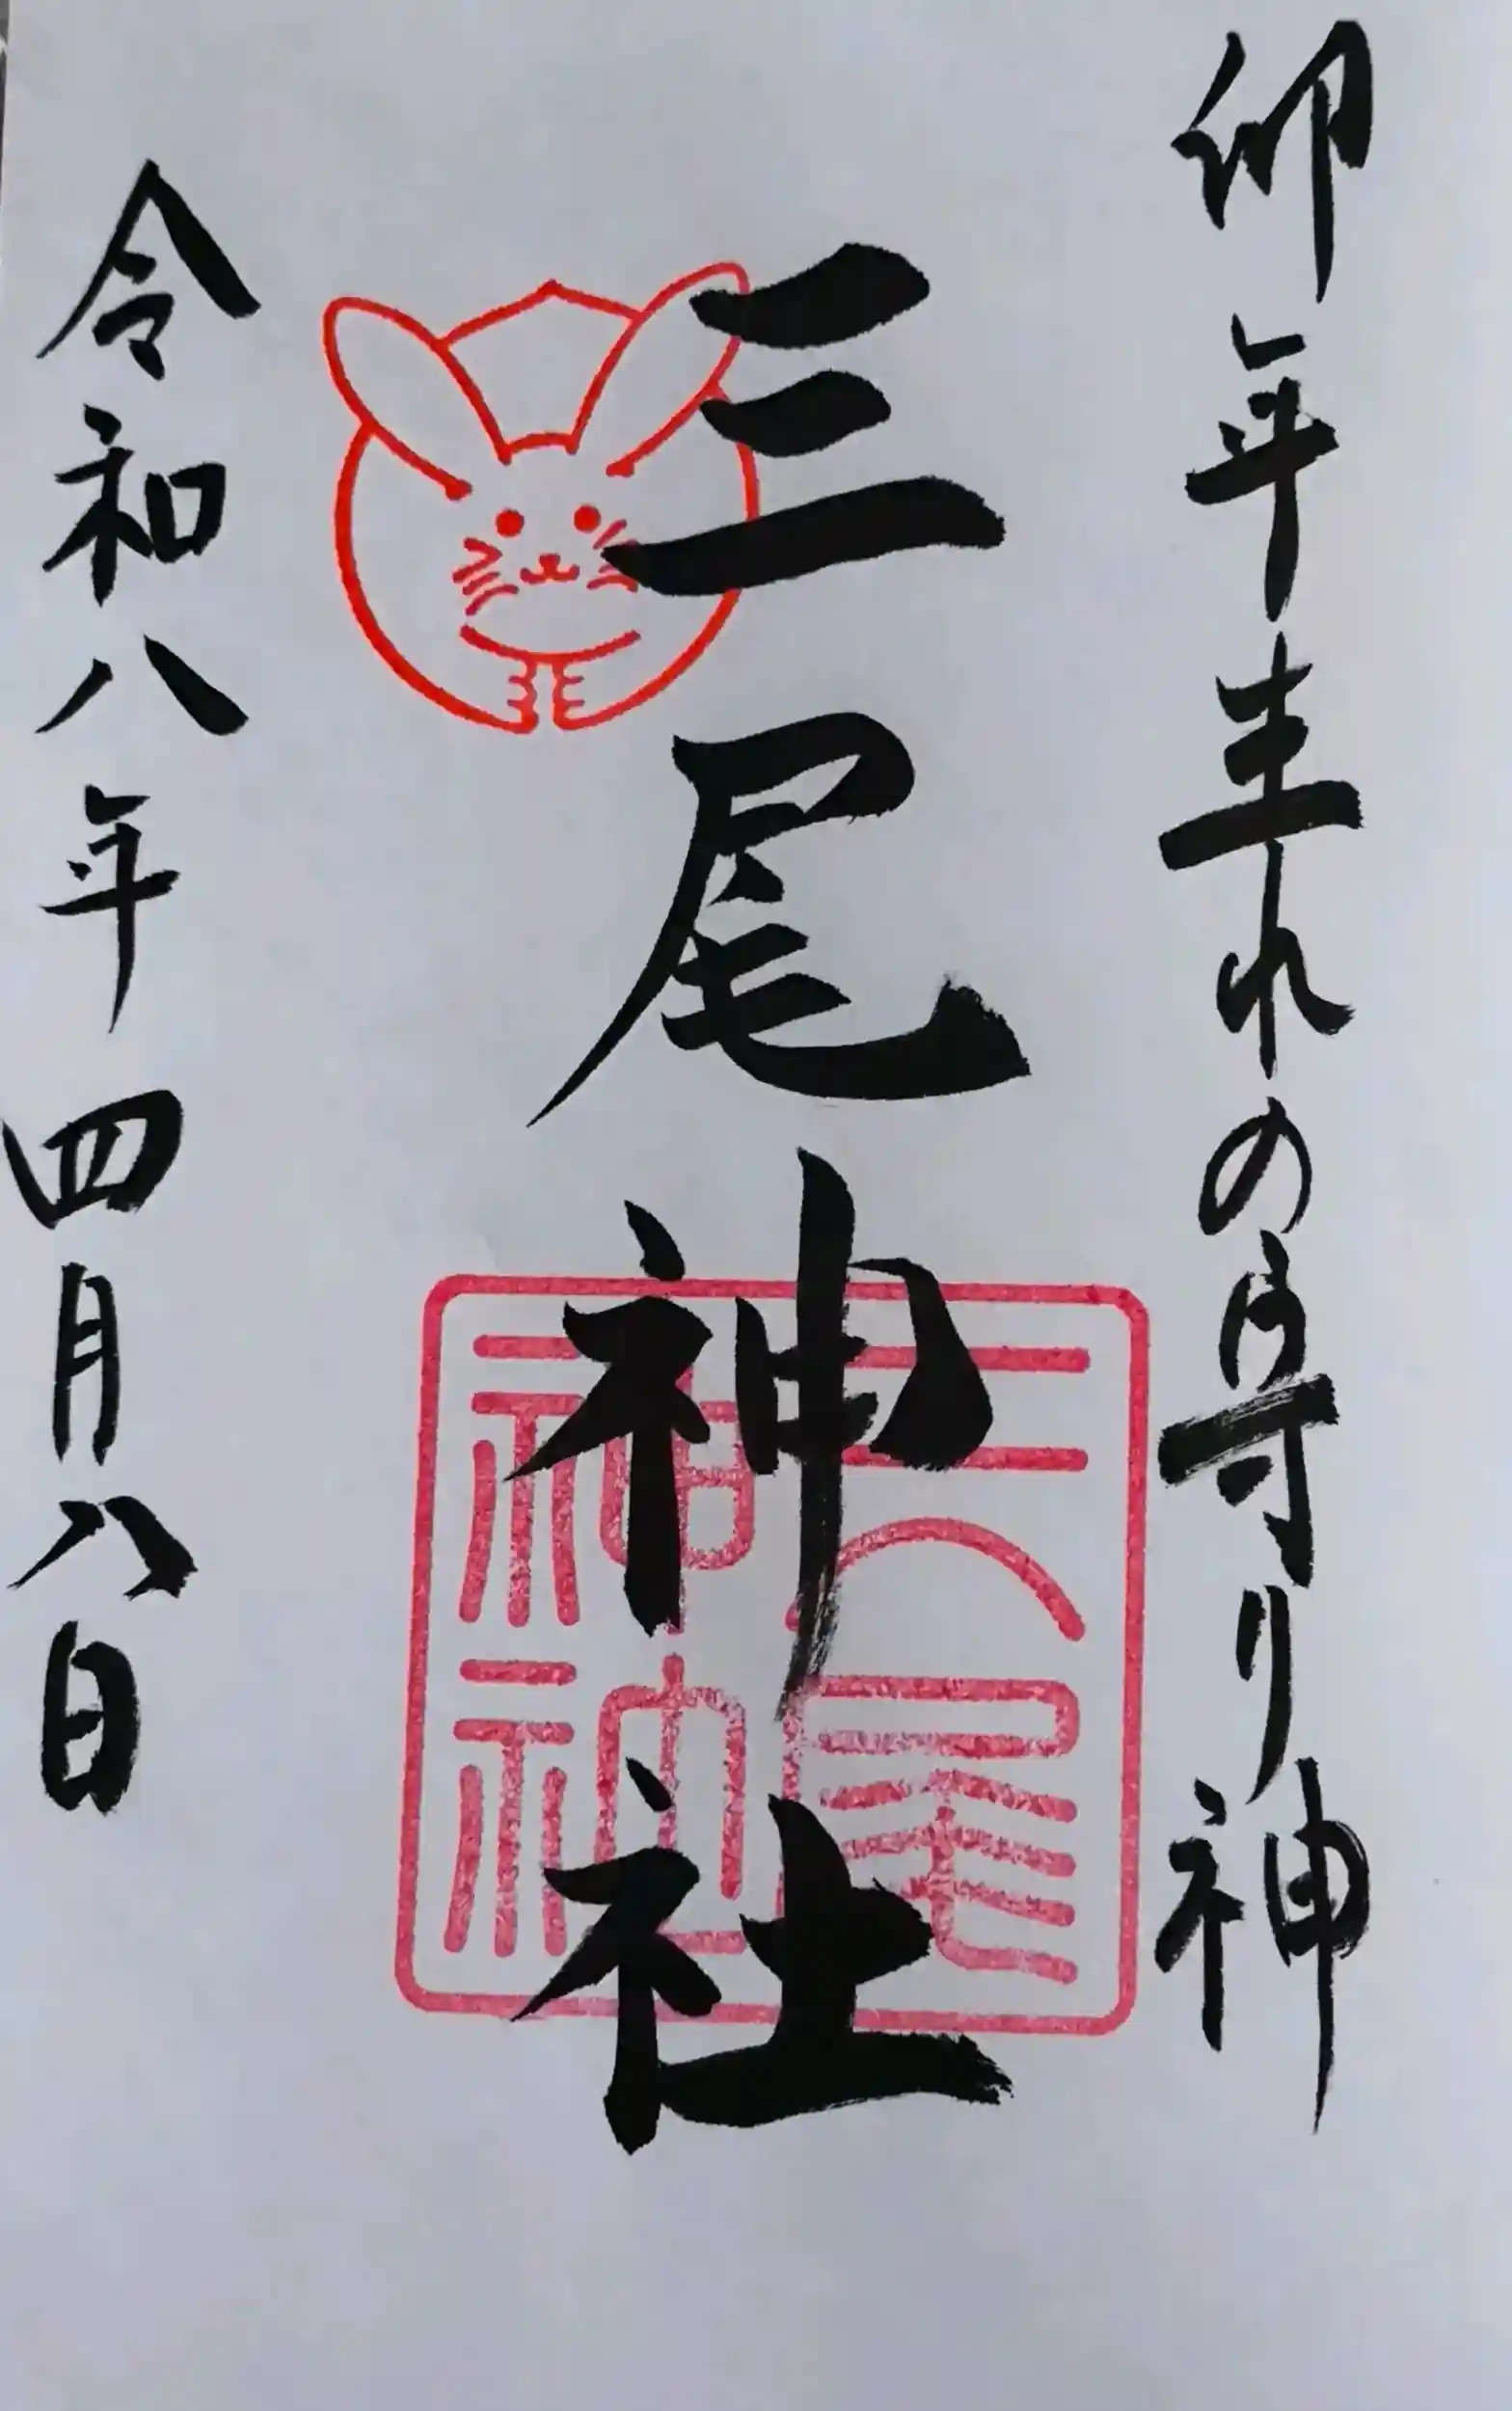 卯年生れの守り神
三尾神社
三尾神社
令和八年 四月八日